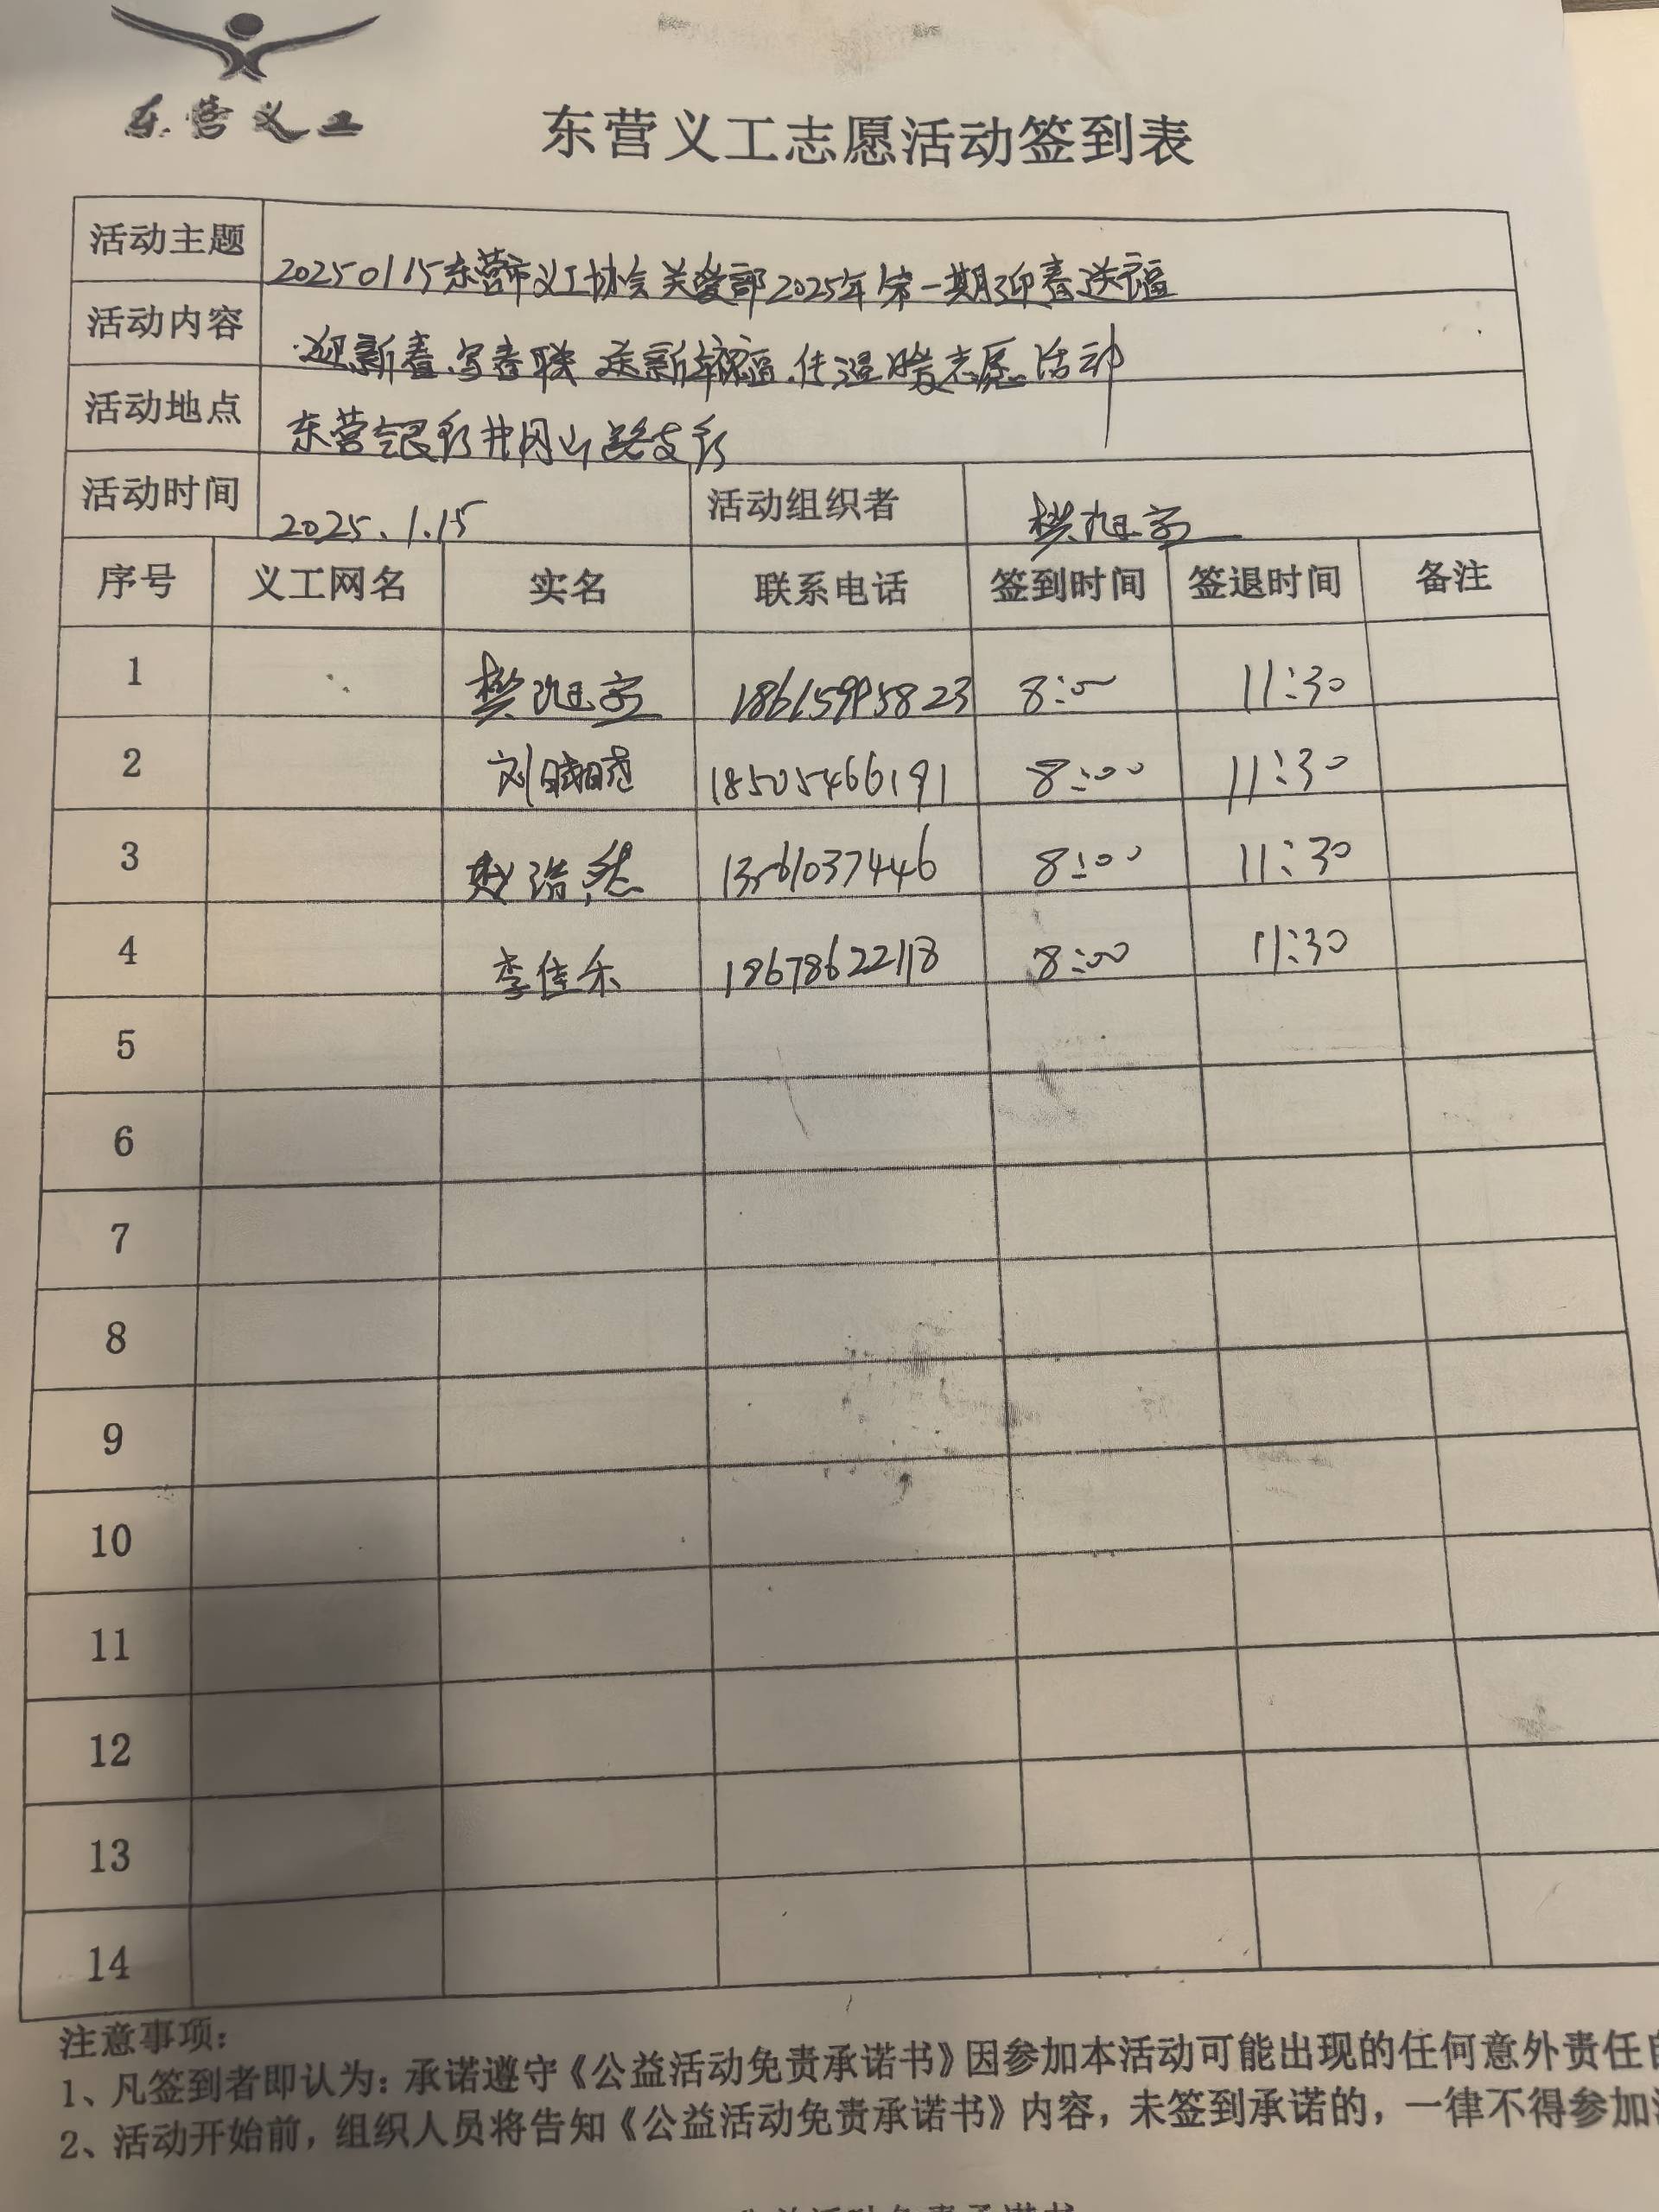 东营义工
东营义工志愿活动签到表
活动主题 20250115东营市义工协会关爱部2025年第一期迎春送福
活动内容 迎新春.写春联 送新年祝福.传温暖志愿活动
活动地点 东营银行井冈山路支行
活动时间 2025.1.15 活动组织者 樊旭字
序号 义工网名 实名 联系电话 签到时间 签退时间 备注
1 樊旭字 18615995823 8:00 11:30
2 刘 18505466191 8:00 11:30
3 赵浩然 13561037446 8:00 11:30
4 李佳乐 18678622118 8:00 11:30
5
6
7
8
9
10
11
12
13
14
注意事项：
1、凡签到者即认为：承诺遵守《公益活动免责承诺书》因参加本活动可能出现的任何意外责任自
2、活动开始前，组织人员将告知《公益活动免责承诺书》内容，未签到承诺的，一律不得参加